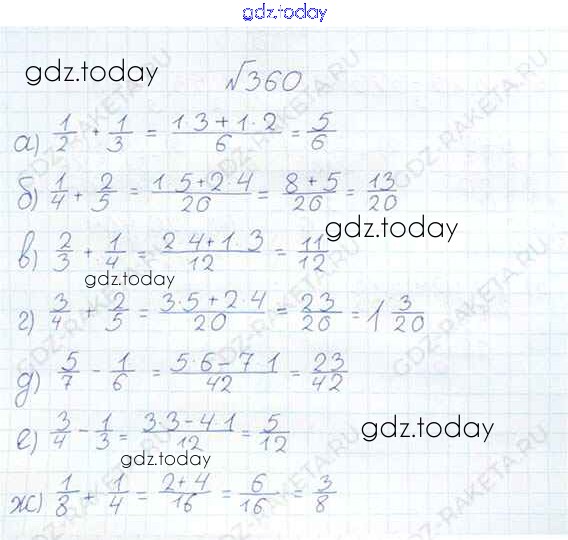 gdz.today
gdz.today
№360
а) 1/2 + 1/3 = (1·3 + 1·2)/6 = 5/6
б) 1/4 + 2/5 = (1·5+2·4)/20 = (8+5)/20 = 13/20
gdz.today
в) 2/3 + 1/4 = (2·4+1·3)/12 = 11/12
gdz.today
г) 3/4 + 2/5 = (3·5+2·4)/20 = 23/20 = 1 3/20
д) 5/7 - 1/6 = (5·6-7·1)/42 = 23/42
е) 3/4 - 1/3 = (3·3-4·1)/12 = 5/12
gdz.today
gdz.today
ж) 1/8 + 1/4 = (2+4)/16 = 6/16 = 3/8
GDZ-RAKETA.RU